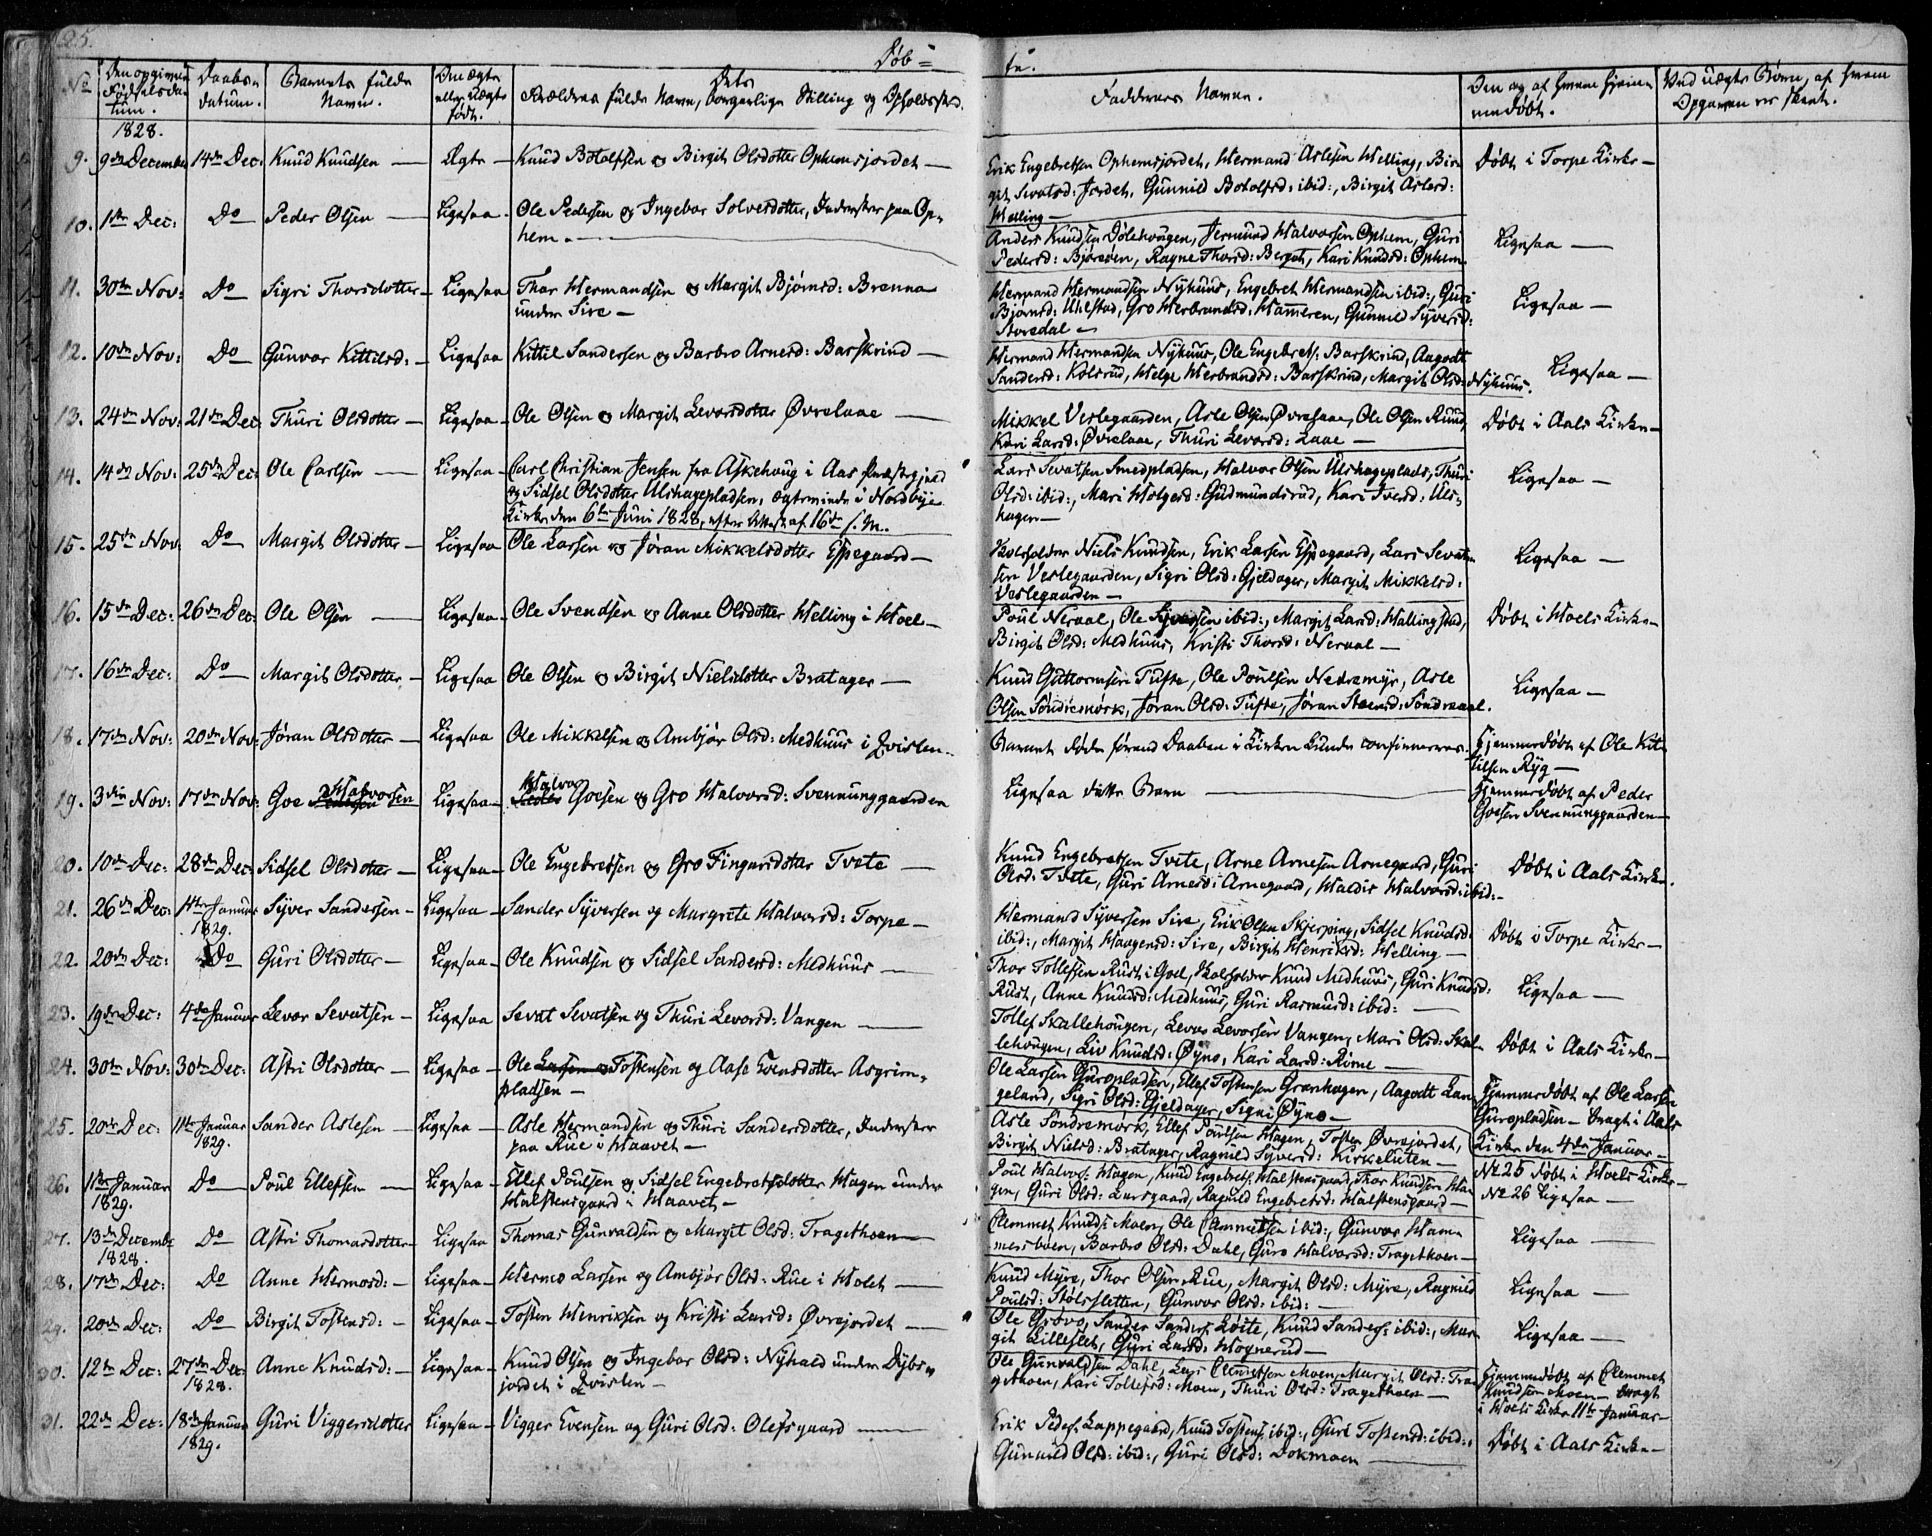 25.
Døb- te.
No
Den opgivne Fødselsda- tum.
Daabs- datum.
Barnets fulde Navn.
Om ægte eller uægte født.
Forældres fulde Navn, Dets borgerlige Stilling og Opholdssted.
Faddernes Navne.
Om og af hvem hjem- medøbt.
Ved uægte Børn, af hvem Opgaven er skeet.
1828.
9. 9de December 14de Dec: Knud Knudsen — Ægte — Knud Botolfsen og Birgit Olsdotter Ophemsjordet —
Erik Engebretsen Ophemsjordet, Hermand Aslesen Helling, Bir-
git Sevatsd: Jordet, Gunnild Botolfsd: ibid:, Birgit Aslesd:
Helling —
Døbt i Torpe Kirke —
10. 1ste Dec: Do Peder Olsen — Ligesaa — Ole Pedersen og Ingebor Solvesdotter, Inderster paa Op-
hem. —
Anders Knudsen Dølehougen, Jermund Halvorsen Ophem, Guri
Pedersd: Bjøreøen, Ragne Thorsd: Berget, Kari Knudsd: Ophem
Ligesaa —
11. 30te Nov: Do Sigri Thorsdotter — Ligesaa Thor Hermandsen og Margit Bjørnsd: Brenna
under Sire —
Hermand Hermandsen Nyhuus, Engebret Hermandsen ibid:, Guri
Bjørnsd: Uhlstad, Gro Herbrandsd: Hammeren, Gunnild Syversd:
Storedal —
Ligesaa —
12. 10de Nov: Do Gunvor Kittilsd: — Ligesaa Kittil Sandersen og Barbro Arnesd: Barskrind —
Hermand Hermandsen Nyhuus, Ole Engebrets: Barskrind, Aagodt
Sandersd: Kolsrud, Helge Herbrandsd: Barskrind, Margit Olsd: Nyhuus.
Ligesaa —
13. 24de Nov: 21de Dec: Thuri Olsdotter — Ligesaa — Ole Olsen og Margit Levorsdotter Øvrelaae —
Mikkel Veslegaarden, Asle Olsen Øvrelaae, Ole Olsen Ruud,
Kari Larsd: Øvrelaae, Thuri Levorsd: Laae —
Døbt i Aals Kirke —
14. 14de Nov: 25de Dec: Ole Carlsen — Ligesaa — Carl Christian Jensen fra Askehoug i Aas Præstegjeld
og Sidsel Olsdotter Ulshagepladsen, ægteviede i Nordbye
Kirke den 6te Juni 1828, efter Attest af 16de s. M.
Lars Sevatsen Smedpladsen, Halvor Olsen Ulshageplads, Thuri
Olsd: ibid:, Mari Holgersd: Gudmundsrud, Kari Iversd: Uls-
hagen —
Ligesaa —
15. 25de Nov: Do Margit Olsdotter — Ligesaa Ole Larsen og Jøran Mikkelsdotter Espegaard —
Skoleholder Niels Knudsen, Erik Larsen Espegaard, Lars Sevat-
sen Veslegaarden, Sigri Olsd: Gjeldager, Margit Mikkelsd:
Veslegaarden —
Ligesaa —
16. 15de Dec: 26de Dec: Ole Olsen — Ligesaa — Ole Svendsen og Anne Olsdotter Helling i Hoel —
Poul Neraal, Ole Syversen ibid:, Margit Larsd: Hallingstad,
Birgit Olsd: Medhuus, Kristi Thorsd: Neraal —
Døbt i Hoels Kirke —
17. 16de Dec: Do Margit Olsdotter — Ligesaa Ole Olsen og Birgit Nielsdotter Bratager —
Knud Guttormsen Tufte, Ole Poulsen Nedremyr, Asle
Olsen Sondremørk, Jøran Olsd: Tufte, Jøran Steensd: Sondreaal.
Ligesaa —
18. 17de Nov: 20de Nov: Jøran Olsdotter — Ligesaa Ole Mikkelsen og Ambjør Olsd: Medhuus i Qvislen —
Barnet døde førend Daaben i Kirken kunde confirmeres.
Hjemmedøbt af Ole Kit-
tilsen Ryg —
19. 3die Nov: 17de Nov: Goe Halvorsen Ligesaa — Halvor Goesen og Gro Halvorsd: Svennunggaarden
Ligesaa dette Barn —
Hjemmedøbt af Peder
Goesen Svennunggaarden —
20. 10de Dec: 28de Dec: Sidsel Olsdotter — Ligesaa — Ole Engebretsen og Gro Fingarsdotter Tvete —
Knud Engebretsen Tvete, Arne Arnesen Arnegaard, Guri
Olsd: Tvete, Guri Arnesd: Arnegaard, Haldis Halvorsd: ibid: —
Døbt i Aals Kirke.
21. 26de Dec: 1ste Januar 1829. Syver Sandersen — Ligesaa — Sander Syversen og Margrete Halvorsd: Torpe —
Hermand Syversen Sire, Erik Olsen Skjerping, Sidsel Knudsd:
ibid:, Margit Haagensd: Sire, Birgit Henriksd: Helling —
Døbt i Torpe Kirke —
22. 20de Dec: Do Guri Olsdotter — Ligesaa — Ole Knudsen og Sidsel Sandersd: Medhuus —
Thor Tollefsen Rust i Goel, Skoleholder Knud Medhuus, Guri Knudsd:
Rust, Anne Knudsd: Medhuus, Guri Rasmusd: ibid: —
Ligesaa —
23. 19de Dec: 4de Januar Levor Sevatsen — Ligesaa Sevat Sevatsen og Thuri Levorsd: Vangen —
Tollef Skallehougen, Levor Levorsen Vangen, Mari Olsd: Skal-
lehougen, Liv Knudsd: Øyno, Kari Larsd: Rime —
Døbt i Aals Kirke —
24. 30te Nov: 30te Dec: Astri Olsdotter — Ligesaa — Ole Tostensen og Aase Evensdotter Asgrim-
pladsen —
Ole Larsen Guropladsen, Ellef Tostensen Grønhagen, Aagodt Lan-
geland, Sigri Olsd: Gjeldager, Signi Øyno —
Hjemmedøbt af Ole Larsen
Guropladsen — bragt i Aals
Kirke den 4de Januar —
25. 20de Dec: 11te Januar 1829. Sander Aslesen — Ligesaa — Asle Hermandsen og Thuri Sandersdotter, Inderster
paa Rue i Haavet —
Asle Sondremørk, Ellef Poulsen Hagen, Tosten Øvrejordet,
Birgit Nielsd: Bratager, Ragnild Syversd: Kirkeluten —
No 25 Døbt i Hoels Kirke —
26. 1ste Januar 1829. Do Poul Ellefsen — Ligesaa — Ellef Poulsen og Sidsel Engebretsdotter Hagen under
Halstensgaard i Haavet —
Poul Halvors: Hagen, Knud Engebrets: Halstensgaard, Thor Knudsen Ha-
gen, Guri Olsd: Larsgaard, Ragnild Engebretsd: Halstensgaard —
No 26 Ligesaa —
27. 13de December 1828. Do Astri Thomasdotter — Ligesaa Thomas Gunvaldsen og Margit Olsd: Tragethoen —
Clemmet Knuds: Moen, Ole Clemmetsen ibid:, Gunvor Ham-
mersbøen, Barbro Olsd: Dahl, Guro Halvorsd: Tragethoen —
Ligesaa —
28. 17de Dec: Do Anne Hermosd: — Ligesaa — Hermo Larsen og Ambjør Olsd: Rue i Holet —
Knud Myre, Thor Olsen Rue, Margit Olsd: Myre, Ragnild
Poulsd: Stølssletten, Gunvor Olsd: ibid: —
Ligesaa —
29. 20de Dec: Do Birgit Tostensd: — Ligesaa — Tosten Henriksen og Kristi Larsd: Øvrejordet —
Ole Grøvo, Sander Sanders: Løite, Knud Sanders: ibid:, Mar-
git Lilleslet, Guri Larsd: Hognerud —
Ligesaa —
30. 12te Dec: 27de Dec: 1828. Anne Knudsd: — Ligesaa — Knud Olsen og Ingebor Olsd: Nyhald under Dybs-
jordet i Qvislen —
Ole Gunvaldsen Dahl, Lars Clemetsen Moen, Margit Olsd: Tra-
gethoen, Kari Tollefsd: Moen, Thuri Olsd: Tragethoen —
Hjemmedøbt af Clemmet
Knudsen Moen — bragt
i Hoels Kirke 11te Januar —
31. 22de Dec: 18de Januar 1829. Guri Viggersdotter Ligesaa — Vigger Evensen og Guri Olsd: Olefsgaard —
Erik Peders: Lappegaard, Knud Tostens: ibid:, Guri Tostensd: ibid:,
Gunnild Olsd: ibid:, Guri Olsd: Dokmoen —
Døbt i Aals Kirke —